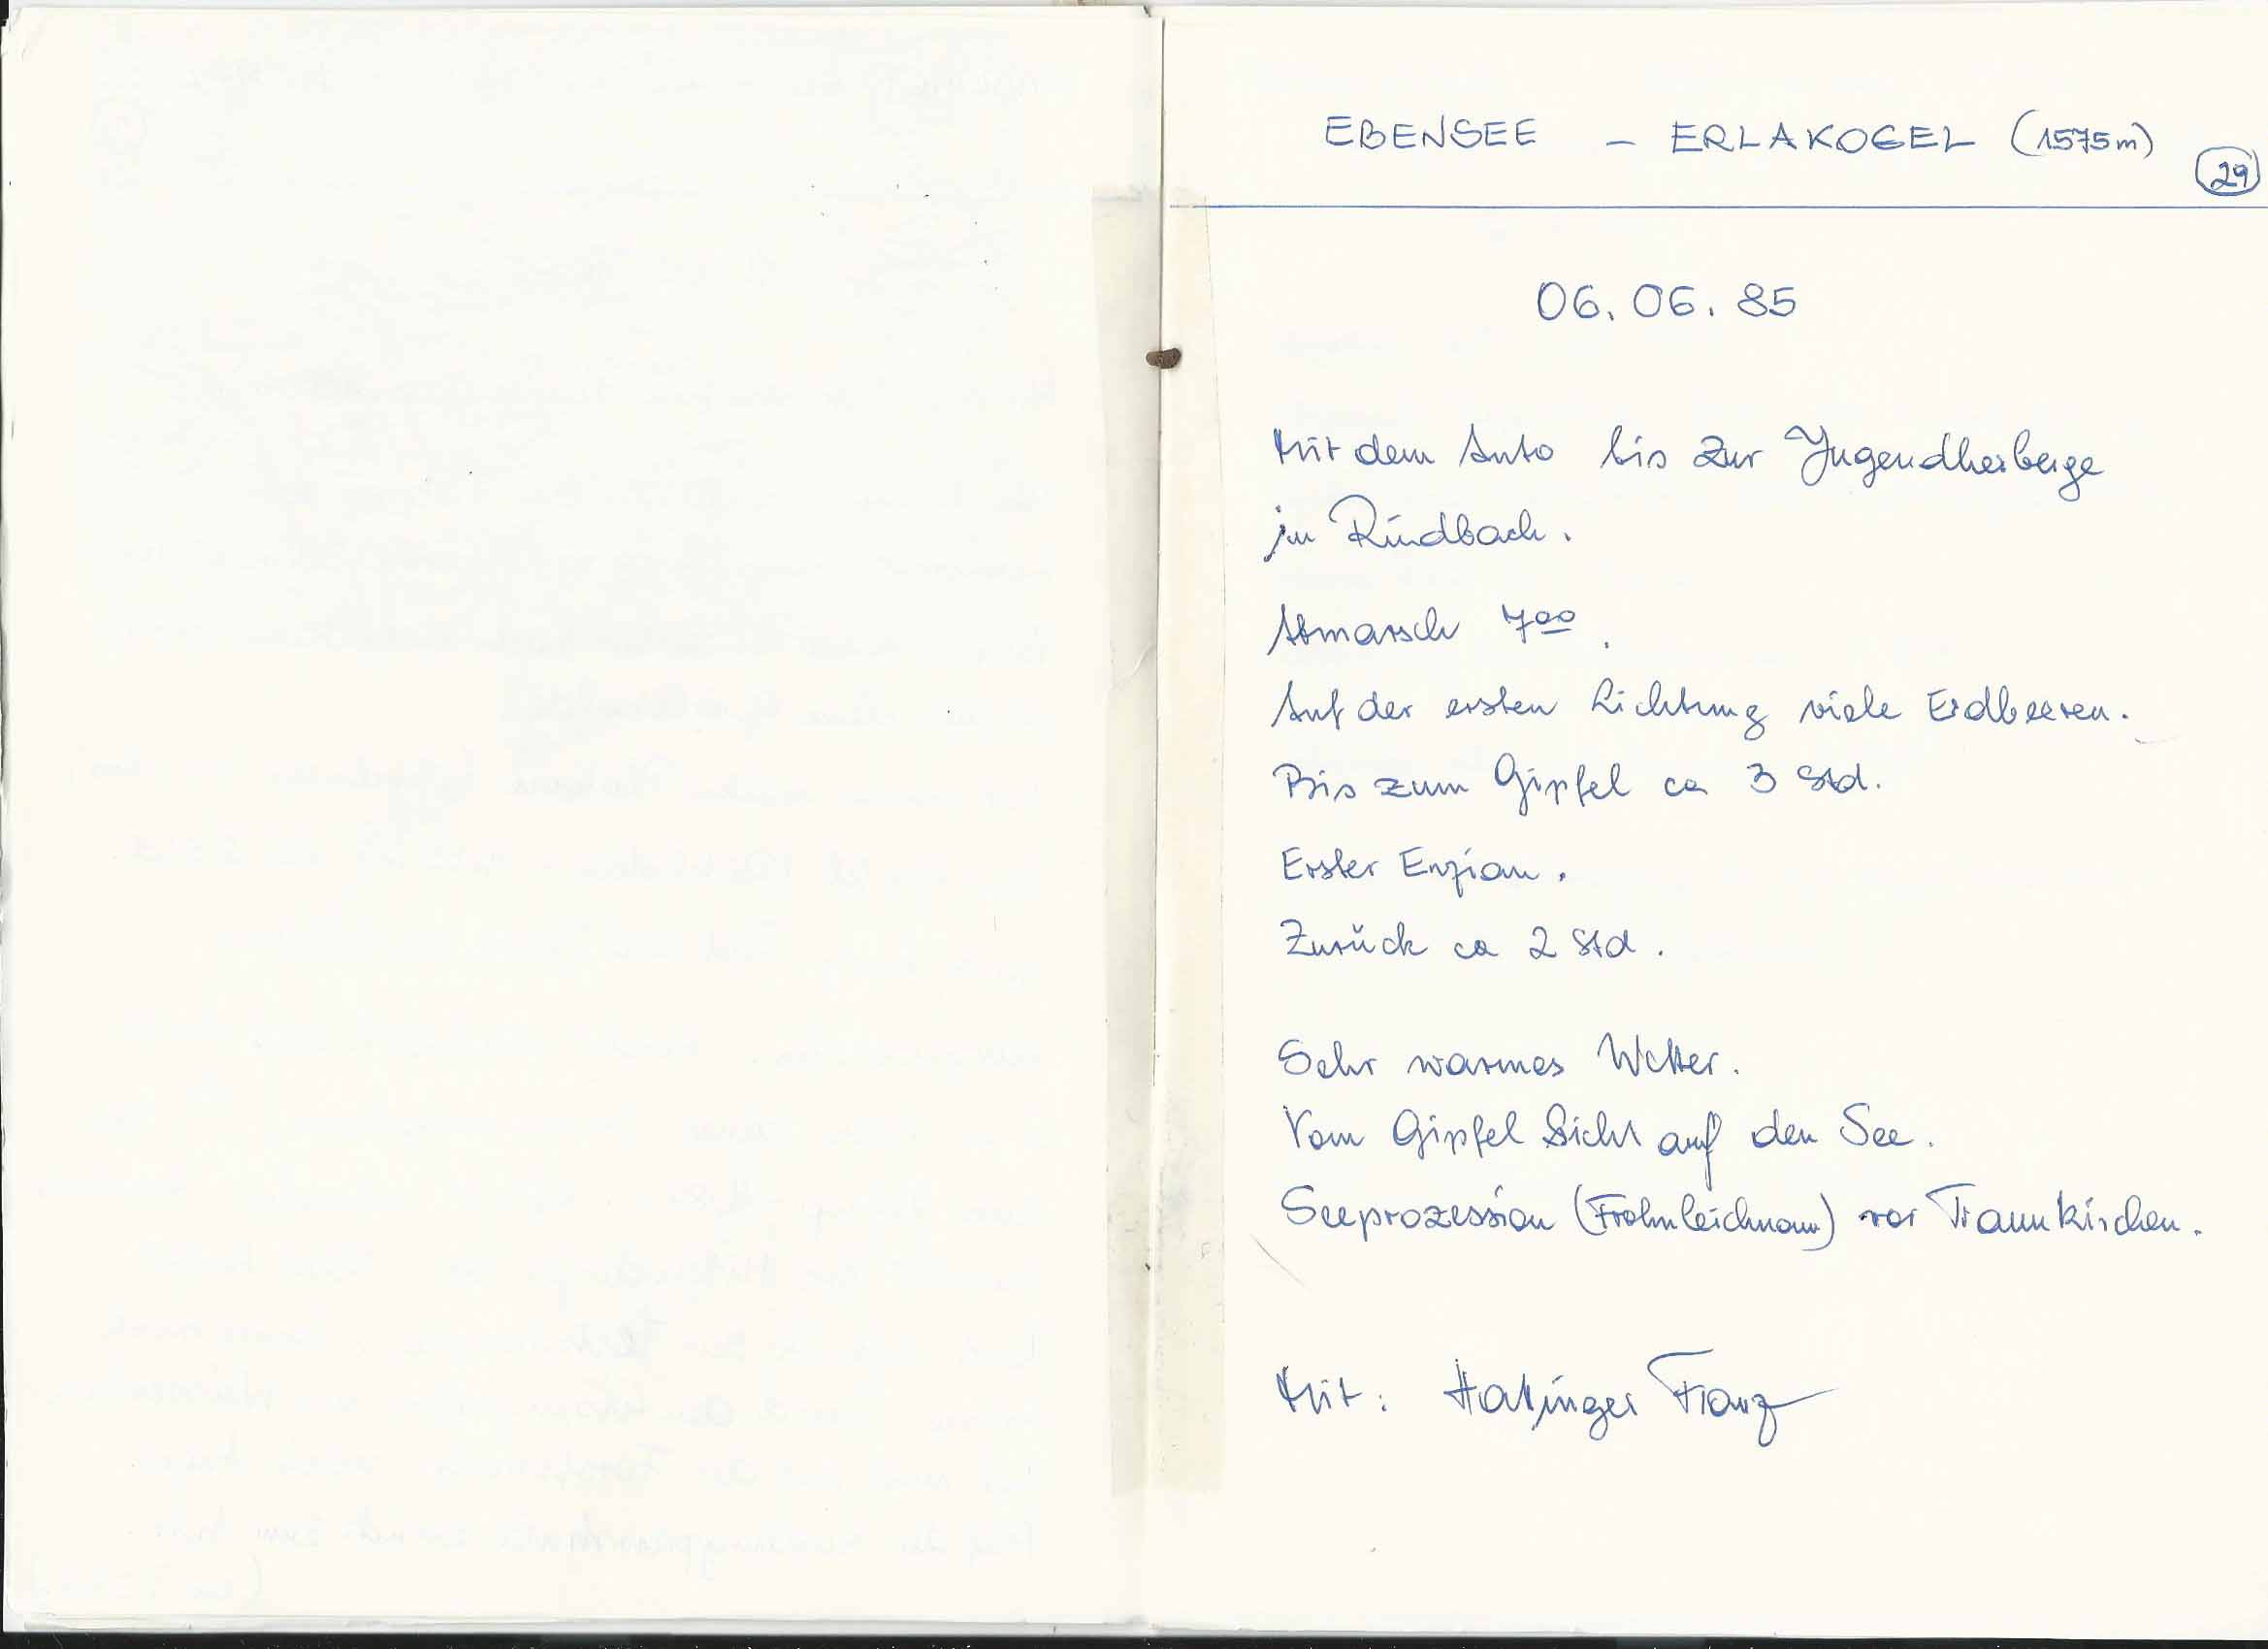 EBENSEE – ERLAKOGEL (1575m)
29
06.06.85
Mit dem Auto bis zur Jugendherberge
in Rindbach.
Abmarsch 7⁰⁰.
Auf der ersten Lichtung viele Erdbeeren.
Bis zum Gipfel ca 3 Std.
Erster Enzian.
Zurück ca 2 Std.
Sehr warmes Wetter.
Vom Gipfel Sicht auf den See.
Seeprozession (Frohnleichnam) vor Traunkirchen.
Mit: Franz